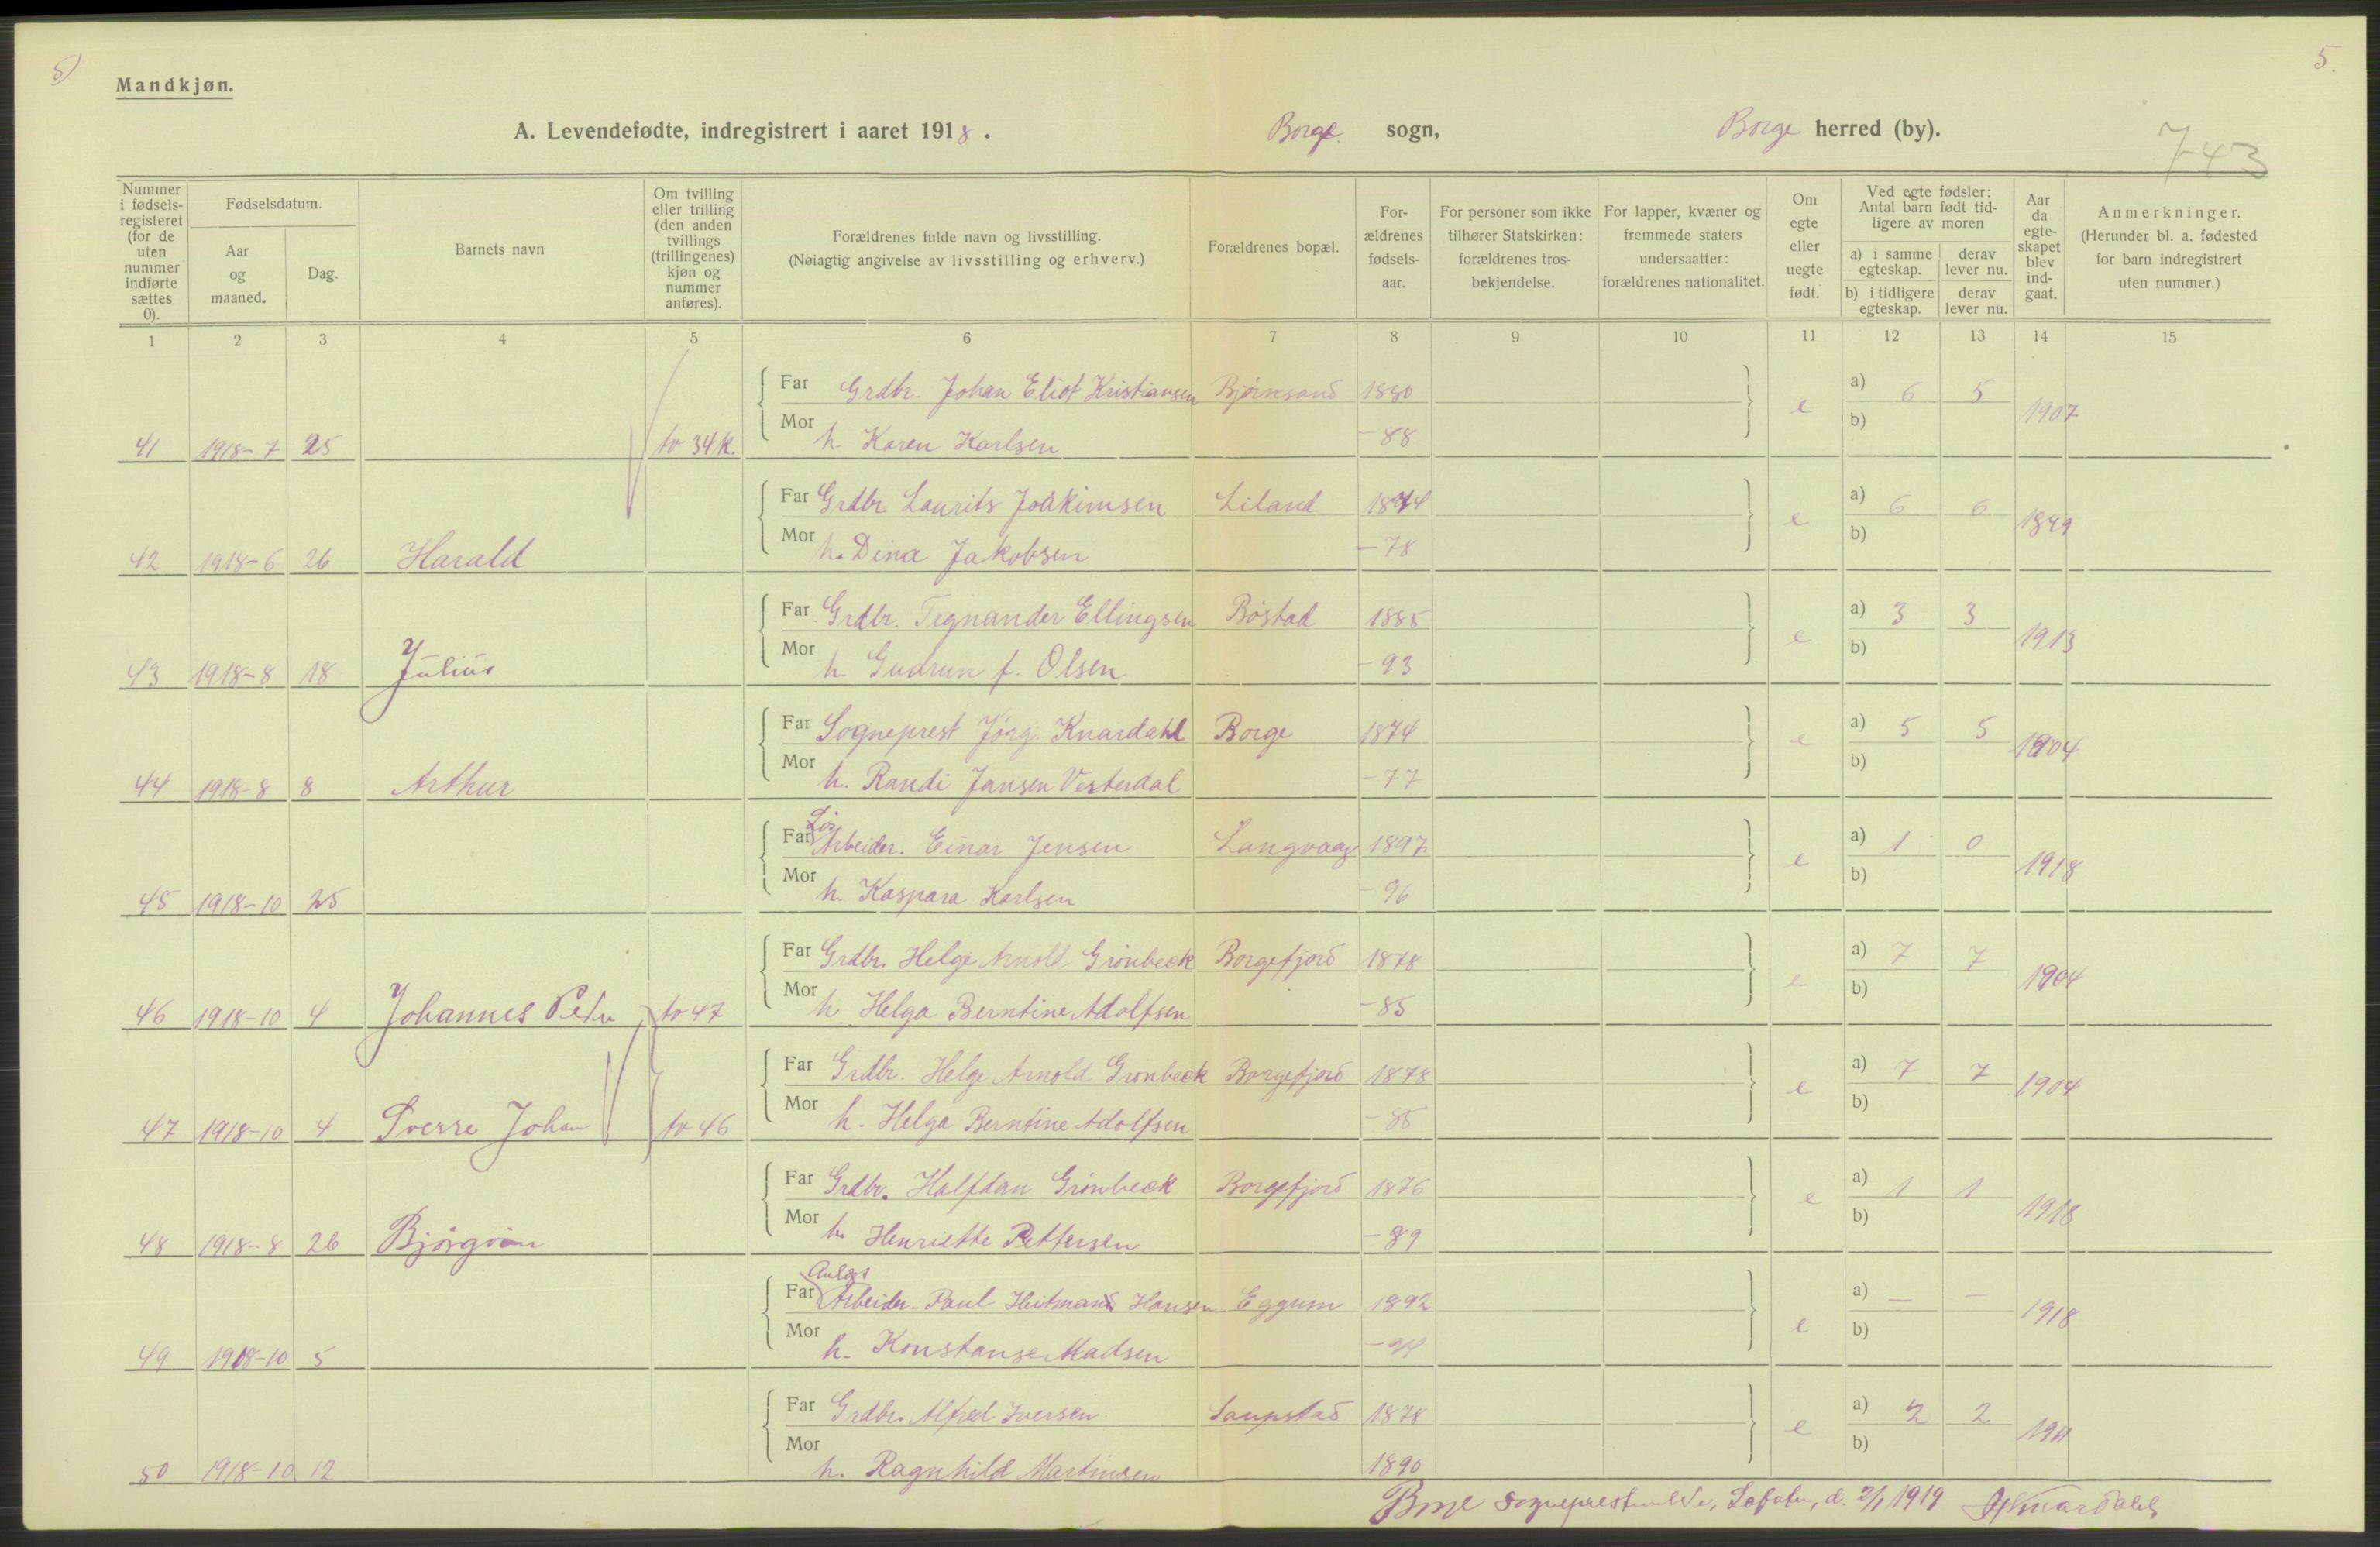 5)
5.
Mandkjøn.
A. Levendefødte, indregistrert i aaret 1918.
Borge sogn,
Borge herred (by).
743
Nummer i fødselsregisteret (for de uten nummer indførte sættes 0).
Fødselsdatum.
Aar og maaned.
Dag.
Barnets navn
Om tvilling eller trilling (den anden tvillings (trillingenes) kjøn og nummer anføres).
Forældrenes fulde navn og livsstilling.
(Nøiagtig angivelse av livsstilling og erhverv.)
Forældrenes bopæl.
Forældrenes fødselsaar.
For personer som ikke tilhører Statskirken: forældrenes trosbekjendelse.
For lapper, kvæner og fremmede staters undersaatter: forældrenes nationalitet.
Om egte eller uegte født.
Ved egte fødsler: Antal barn født tidligere av moren
a) i samme egteskap.
derav lever nu.
b) i tidligere egteskap.
derav lever nu.
Aar da egteskapet blev indgaat.
Anmerkninger.
(Herunder bl. a. fødested for barn indregistrert uten nummer.)
1 2 3 4 5 6 7 8 9 10 11 12 13 14 15
Far Grdbr. Johan Eliot Kristiansen Bjørnsand 1880 e a) 6 5 1907
41 1918-7 25 tv 34 k. Mor h. Karen Karlsen -88 b)
Far Grdbr. Laurits Joakimsen Liland 1874 e a) 6 6 1899
42 1918-6 26 Harald Mor h. Dina Jakobsen -78 b)
Far Grdbr. Tegnander Ellingsen Bøstad 1885 e a) 3 3 1913
43 1918-8 18 Julius Mor h. Gudrun f. Olsen -93 b)
Far Sogneprest Jørg. Knardahl Borge 1874 e a) 5 5 1904
44 1918-8 8 Arthur Mor h. Randi Jansen Vesterdal -77 b)
Far Løs Arbeider. Einar Jensen Langvaag 1897 e a) 1 0 1918
45 1918-10 25 Mor h. Kaspara Karlsen -96 b)
Far Grdbr. Helge Arnold Grønbeck Borgefjord 1878 e a) 7 7 1904
46 1918-10 4 Johannes Peder tv 47 Mor h. Helga Berntine Adolfsen -85 b)
Far Grdbr. Helge Arnold Grønbeck Borgefjord 1878 e a) 7 7 1904
47 1918-10 4 Sverre Johan tv 46 Mor h. Helga Berntine Adolfsen -85 b)
Far Grdbr. Halfdan Grønbeck Borgefjord 1876 e a) 1 1 1918
48 1918-8 26 Bjørgvin Mor h. Henriette Pettersen -89 b)
Far Anlægs Arbeider. Paul Heitmann Hansen Eggum 1892 e a) — — 1918
49 1918-10 5 Mor h. Konstanse Madsen b)
Far Grdbr. Alfred Iversen Saupstad 1878 e a) 2 2 1911
50 1918-10 12 Mor h. Ragnhild Martinsen 1890 b)
Borge sogneprestembede, Lofoten, d. 2/1 1919 Knardahl